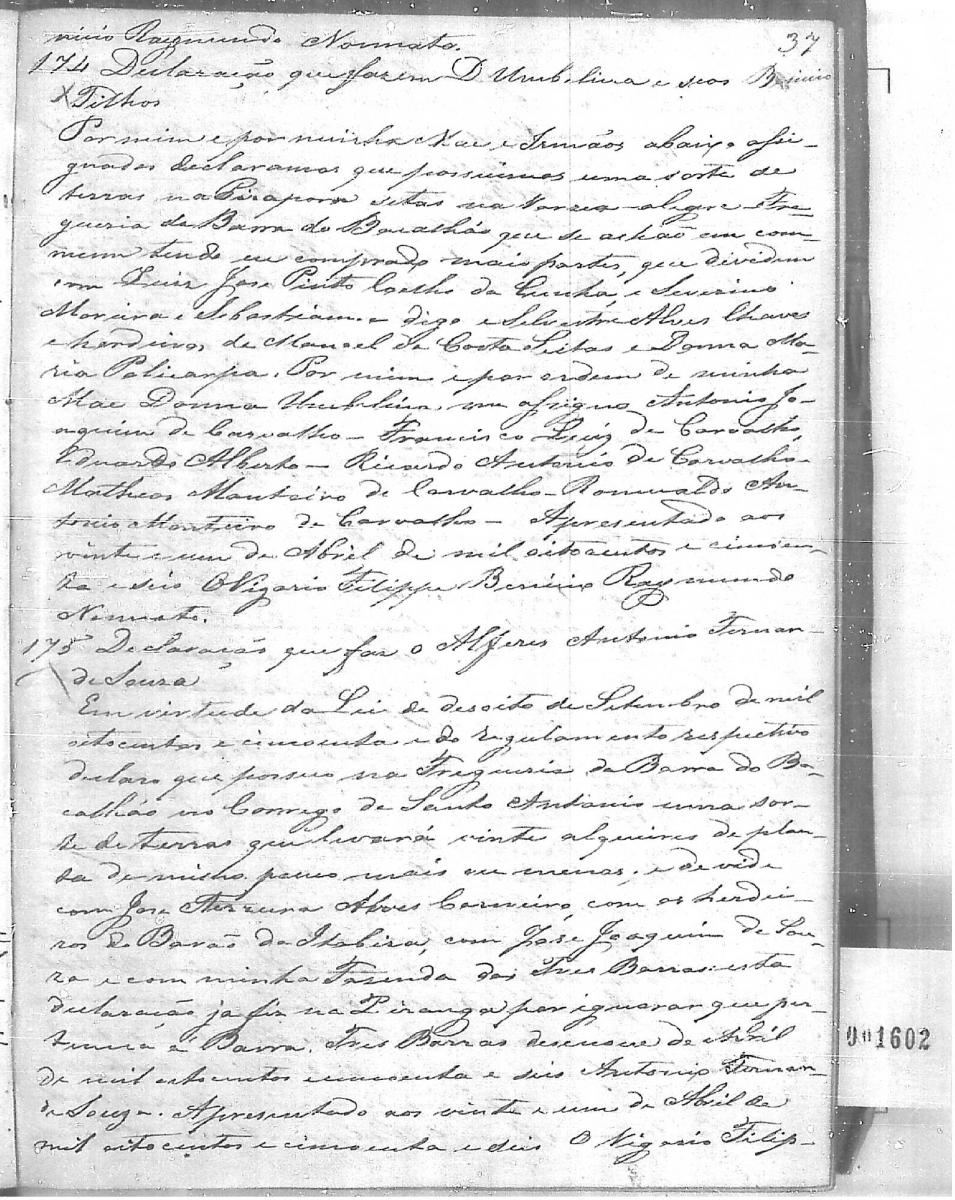 nicio Raymundo Nonnato.
37
174 Declaração que fazem D. Umbelina e seos
Filhos
Por mim e por minha Mae e Irmãos abaixo assi-
gnados declaramos que possuimos uma sorte de
terras na Pirapora sitas na Varzea alegre Fre-
gueria da Barra do Bacalháo que se achão em com-
mum tendo eu comprado mais partes, que dividem
com Luiz Jose Pinto Coelho da Cunha, e Severino
Moreira e Sebastiam. e digo e Selvestre Alves Chaves
e herdeiros de Manoel da Costa Leitas e Donna Ma-
ria Policarpa. Por mim e por ordem de minha
Mae Donna Umbelina, me assigno Antonio Jo-
aquim de Carvalho - Francisco Luiz de Carvalho,
Eduardo Alberto - Ricardo Antonio de Carvalho -
Matheos Monteiro de Carvalho - Romualdo An-
tonio Monteiro de Carvalho - Apresentado aos
vinte e um de Abril de mil oitocentos e cincoen-
ta e seis O Vigario Filippe Benicio Raymundo
Nonnato.
175 Declaração que faz o Alferes Antonio Fernan-
de Souza
Em virtude da Lei de desoito de Setembro de mil
oitocentos e cincoenta e do regulamento respectivo
declaro que possuo na Fregueria da Barra do Ba-
calháo no Corrego de Santo Antonio uma sor-
te de terras que levará vinte alqueires de plan-
ta de milho pouco mais ou menos, e devide
com Jose Alves Carneiro, com os herdei-
ros do Barão da Itabira, com José Joaquim de Sou-
za e com minha Fazenda das Tres Barras: esta
declaração ja fiz na Piranga por ignorar que per-
tencia á Barra. Tres Barras desenove de Abril
de mil oitocentos cincoenta e seis Antonio Fernan-
de Souza. Apresentado aos vinte e um de Abril de
mil oitocentos e cincoenta e seis O Vigario Filip-
001602